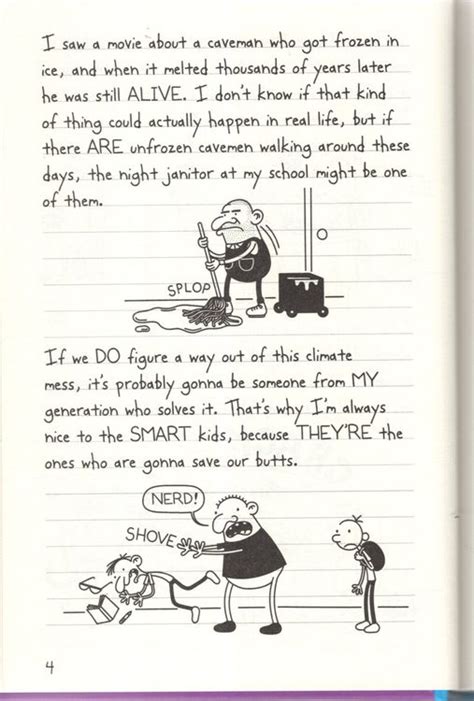 I saw a movie about a caveman who got frozen in
ice, and when it melted thousands of years later
he was still ALIVE. I don't know if that kind
of thing could actually happen in real life, but if
there ARE unfrozen cavemen walking around these
days, the night janitor at my school might be one
of them.
SPLOP
If we DO figure a way out of this climate
mess, it's probably gonna be someone from MY
generation who solves it. That's why I'm always
nice to the SMART kids, because THEY'RE the
ones who are gonna save our butts.
NERD!
SHOVE
4